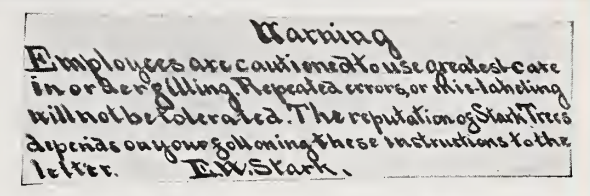 Warning
Employees are cautioned to use greatest care
in order filling. Repeated errors, or mis-labeling
will not be tolerated. The reputation of Stark Trees
depends on your following these instructions to the
letter. E.W. Stark.